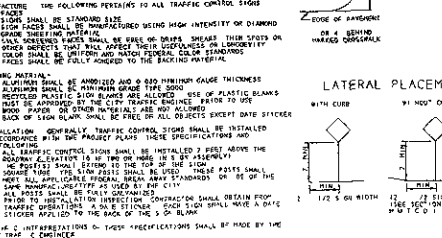 FACTURE THE FOLLOWING PERTAINS TO ALL TRAFFIC CONTROL SIGNS
FACES
SIGNS SHALL BE STANDARD SIZE
SIGN FACES SHALL BE MANUFACTURED USING HIGH INTENSITY OR DIAMOND
GRADE SHEETING MATERIAL
SILK SCREENED FACES SHALL BE FREE OF DRIPS SHEARS THIN SPOTS OR
OTHER DEFECTS THAT WILL AFFECT THEIR USEFULNESS OR LONGEVITY
COLOR SHALL BE UNIFORM AND MATCH FEDERAL COLOR STANDARDS
FACES SHALL BE FULLY ADHERED TO THE BACKING MATERIAL
ING MATERIAL
ALUMINUM SHALL BE ANODIZED AND 0 080 MINIMUM GAUGE THICKNESS
ALUMINUM SHALL BE MINIMUM GRADE TYPE 5000
RECYCLED PLASTIC SIGN BLANKS ARE ALLOWED USE OF PLASTIC BLANKS
MUST BE APPROVED BY THE CITY TRAFFIC ENGINEER PRIOR TO USE
WOOD PAPER OR OTHER MATERIALS ARE NOT ALLOWED
BACK OF SIGN BLANK SHALL BE FREE OF ALL OBJECTS EXCEPT DATE STICKER
ALLATION GENERALLY TRAFFIC CONTROL SIGNS SHALL BE INSTALLED
CCORDANCE WITH THE PROJECT PLANS THESE SPECIFICATIONS AND
FOLLOWING
ALL TRAFFIC CONTROL SIGNS SHALL BE INSTALLED 7 FEET ABOVE THE
ROADWAY ELEVATION
POST(S) SHALL EXTEND TO THE TOP OF THE SIGN
SQUARE TUBE SIGN POSTS SHALL BE USED THESE POSTS SHALL
MEET ALL APPLICABLE FEDERAL STANDARDS OR BE OF THE
SAME MANUFACTURE/TYPE AS USED BY THE CITY
ALL POSTS SHALL BE FULLY GALVANIZED
PRIOR TO INSTALLATION INSPECTION CONTRACTOR SHALL OBTAIN FROM
TRAFFIC OPERATIONS A DATE STICKER EACH SIGN SHALL HAVE A DATE
STICKER APPLIED TO THE BACK OF THE SIGN BLANK
INTERPRETATIONS OF THESE SPECIFICATIONS SHALL BE MADE BY THE
TRAF C ENGINEER
EDGE OF PAVEMENT
OR 4 BEHIND
MARKED CROSSWALK
LATERAL PLACEM
WITH CURB
MIN.
MIN.
1/2 SIGN WIDTH
SEE SECTION
MUTCD